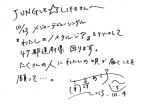 JUNGLE☆LIFEさん〜
10/23 メジャーデビューシングル
"わたしのノスタルジア"をリリースして
47都道府県 回ります。
たくさんの人にわたしの唄が届くことを
願って…。
'13. 10. 4